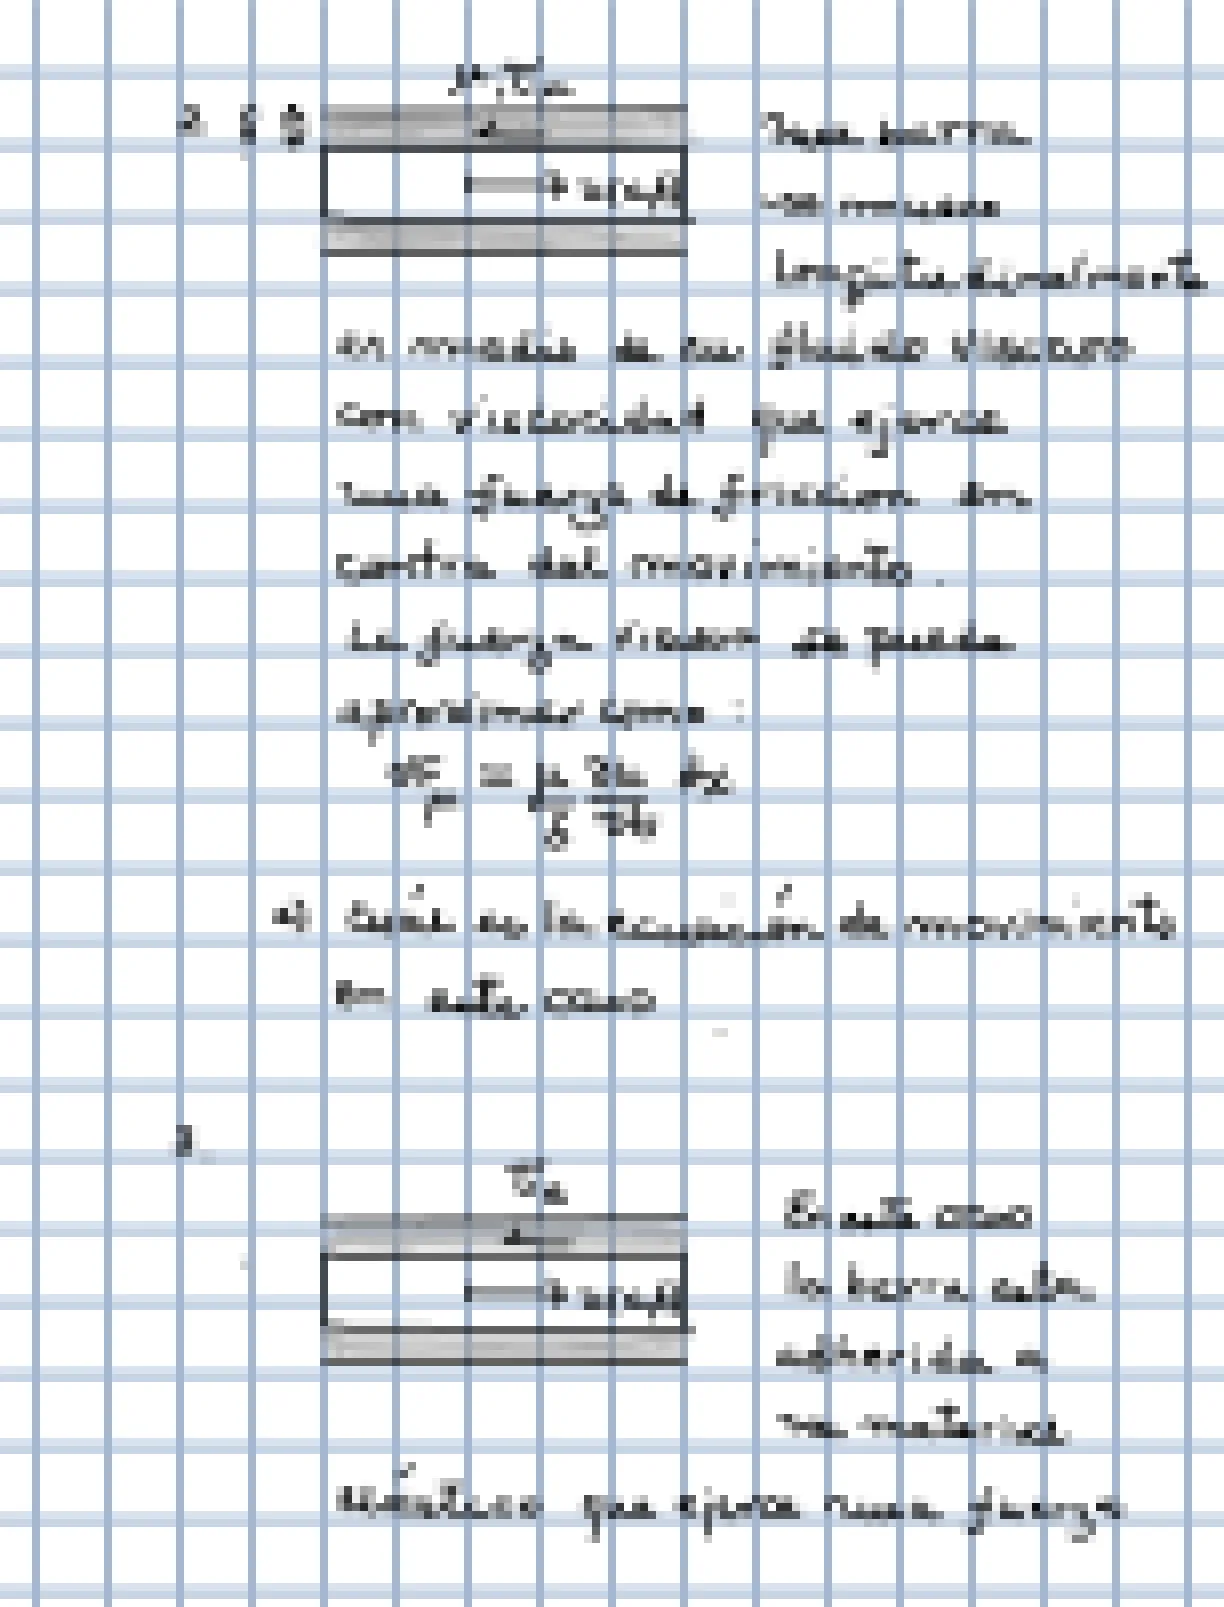 2.
u(x,t)
Una barra
se mueve
longitudinalmente
en medio de un fluido viscoso
con viscosidad que ejerce
una fuerza de friccion en
contra del movimiento.
La fuerza viscosa se puede
aproximar como:
dFμ = μ/δ ∂u/∂t dx
a) Cuál es la ecuación de movimiento
en este caso
3.
u(x,t)
En este caso
la barra esta
adherida a
un material
elástico que ejerce una fuerza